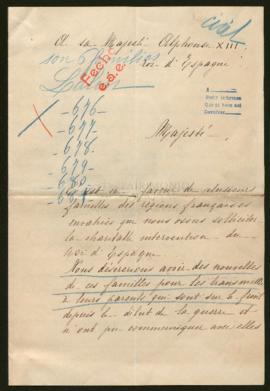 cial
A sa Majesté Alphonse XIII
Roi d'Espagne
son 6 familles
Fecho
e.d.e.
676
677
678
679
680
Majesté
C'est en faveur de plusieurs
familles des régions françaises
envahies que nous osons solliciter
la charitable intervention du
Roi d'Espagne
Nous désirerions avoir des nouvelles
de ces familles pour les transmettre
à leurs parents qui sont sur le front
depuis le début de la guerre et
n'ont pu communiquer avec elles